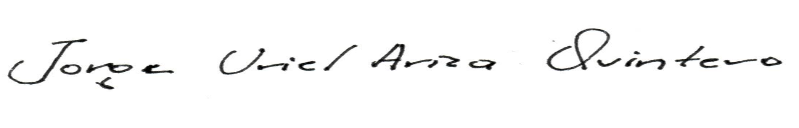 Jorge Uriel Ariza Quintero